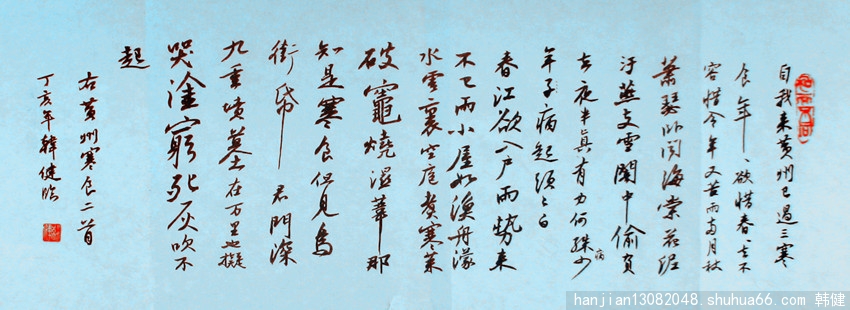 自我来黄州已過三寒
食年〻欲惜春〻去不
容惜今年又苦雨兩月秋
蕭瑟卧聞海棠花泥
汙燕支雪闇中偷負
去夜半真有力何殊少
病
年子病起須已白
春江欲入户雨勢来
不已雨小屋如漁舟濛
水雲裏空庖煮寒菜
破竈燒濕葦那
知是寒食但見烏
銜帋君門深
九重墳墓在万里也擬
哭塗窮死灰吹不
起
右黄州寒食二首
丁亥年韓健臨
hanjian13082048.shuhua66.com 韩健